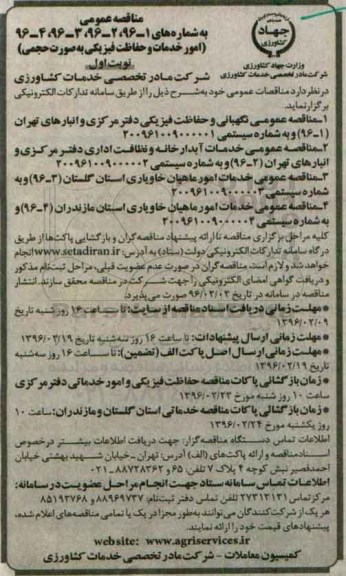 مناقصه عمومی
به شماره های ۱-۹۶، ۲-۹۶، ۳-۹۶، ۴-۹۶
(امور خدمات و حفاظت فیزیکی به صورت حجمی)
نوبت اول
جهاد
کشاورزی
وزارت جهاد کشاورزی
شرکت مادر تخصصی خدمات کشاورزی
شرکت مادر تخصصی خدمات کشاورزی
در نظر دارد مناقصات عمومی خود به شرح ذیل را از طریق سامانه تدارکات الکترونیکی
برگزار نماید.
۱-مناقصه عمومی نگهبانی و حفاظت فیزیکی دفتر مرکزی و انبارهای تهران
(۱-۹۶) و به شماره سیستمی ۲۰۰۹۶۱۰۰۹۰۰۰۰۰۱
۲-مناقصه عمومی خدمات آبدارخانه و نظافت اداری دفتر مرکزی و
انبارهای تهران (۲-۹۶) و به شماره سیستمی ۲۰۰۹۶۱۰۰۹۰۰۰۰۰۲
۳-مناقصه عمومی خدمات امور ماهیان خاویاری استان گلستان (۳-۹۶) و به
شماره سیستمی ۲۰۰۹۶۱۰۰۹۰۰۰۰۰۳
۴-مناقصه عمومی خدمات امور ماهیان خاویاری استان مازندران (۴-۹۶) و
به شماره سیستمی ۲۰۰۹۶۱۰۰۹۰۰۰۰۰۴
کلیه مراحل برگزاری مناقصه تا ارائه پیشنهاد مناقصه گران و بازگشایی پاکت ها از طریق
درگاه سامانه تدارکات الکترونیکی دولت (ستاد) به آدرس: www.setadiran.ir انجام
خواهد شد و لازم است، مناقصه گران در صورت عدم عضویت قبلی، مراحل ثبت نام مذکور
و دریافت گواهی امضای الکترونیکی را جهت شرکت در مناقصه محقق سازند. انتشار
مناقصه در سامانه در تاریخ ۹۶/۰۲/۰۲ صورت می پذیرد.
* مهلت زمانی دریافت اسناد مناقصه از سایت: تا ساعت ۱۶ روز شنبه تاریخ
۱۳۹۶/۰۲/۰۹
* مهلت زمانی ارسال پیشنهادات: تا ساعت ۱۶ روز سه شنبه تاریخ ۱۳۹۶/۰۲/۱۹
* مهلت زمانی ارسال اصل پاکت الف (تضمین): تا ساعت ۱۶ روز سه شنبه
تاریخ ۱۳۹۶/۰۲/۱۹
* زمان بازگشائی پاکات مناقصه حفاظت فیزیکی و امور خدماتی دفتر مرکزی
ساعت ۱۰ روز شنبه مورخ ۱۳۹۶/۰۲/۲۳
* زمان بازگشائی پاکات مناقصه خدماتی استان گلستان و مازندران: ساعت ۱۰
روز یکشنبه مورخ ۱۳۹۶/۰۲/۲۴
اطلاعات تماس دستگاه مناقصه گزار: جهت دریافت اطلاعات بیشتر در خصوص
اسناد مناقصه و ارائه پاکت های (الف) آدرس: تهران - خیابان شهید بهشتی خیابان
احمد قصیر نبش کوچه ۴ پلاک ۷ تلفن: ۶۵ و ۸۸۷۲۸۳۶۲-۰۲۱
اطلاعات تماس سامانه ستاد جهت انجام مراحل عضویت در سامانه:
مرکز تماس ۲۷۳۱۳۱۳۱ تلفن تماس دفتر ثبت نام: ۸۸۹۶۹۷۳۷ و ۸۵۱۹۳۷۶۸
هر یک از شرکت کنندگان می توانند به طور مجزا در یک یا تمامی مناقصه های اعلام شده،
پیشنهادهای قیمت خود را ارائه نمایند.
website: www.agriservices.ir
کمیسیون معاملات - شرکت مادر تخصصی خدمات کشاورزی